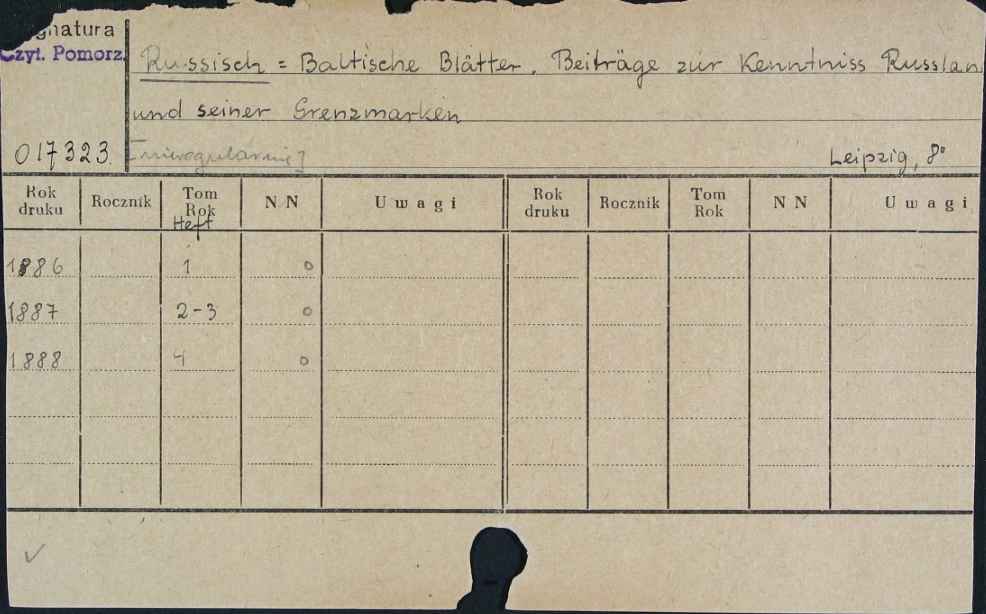 gnatura
Czyt. Pomorz.
Russisch = Baltische Blätter. Beiträge zur Kenntniss Russlan
und seiner Grenzmarken
017323. [nieregularnie] Leipzig, 8°
Rok druku Rocznik Tom Rok Heft NN Uwagi Rok druku Rocznik Tom Rok NN Uwagi
1886 1 o
1887 2-3 o
1888 4 o